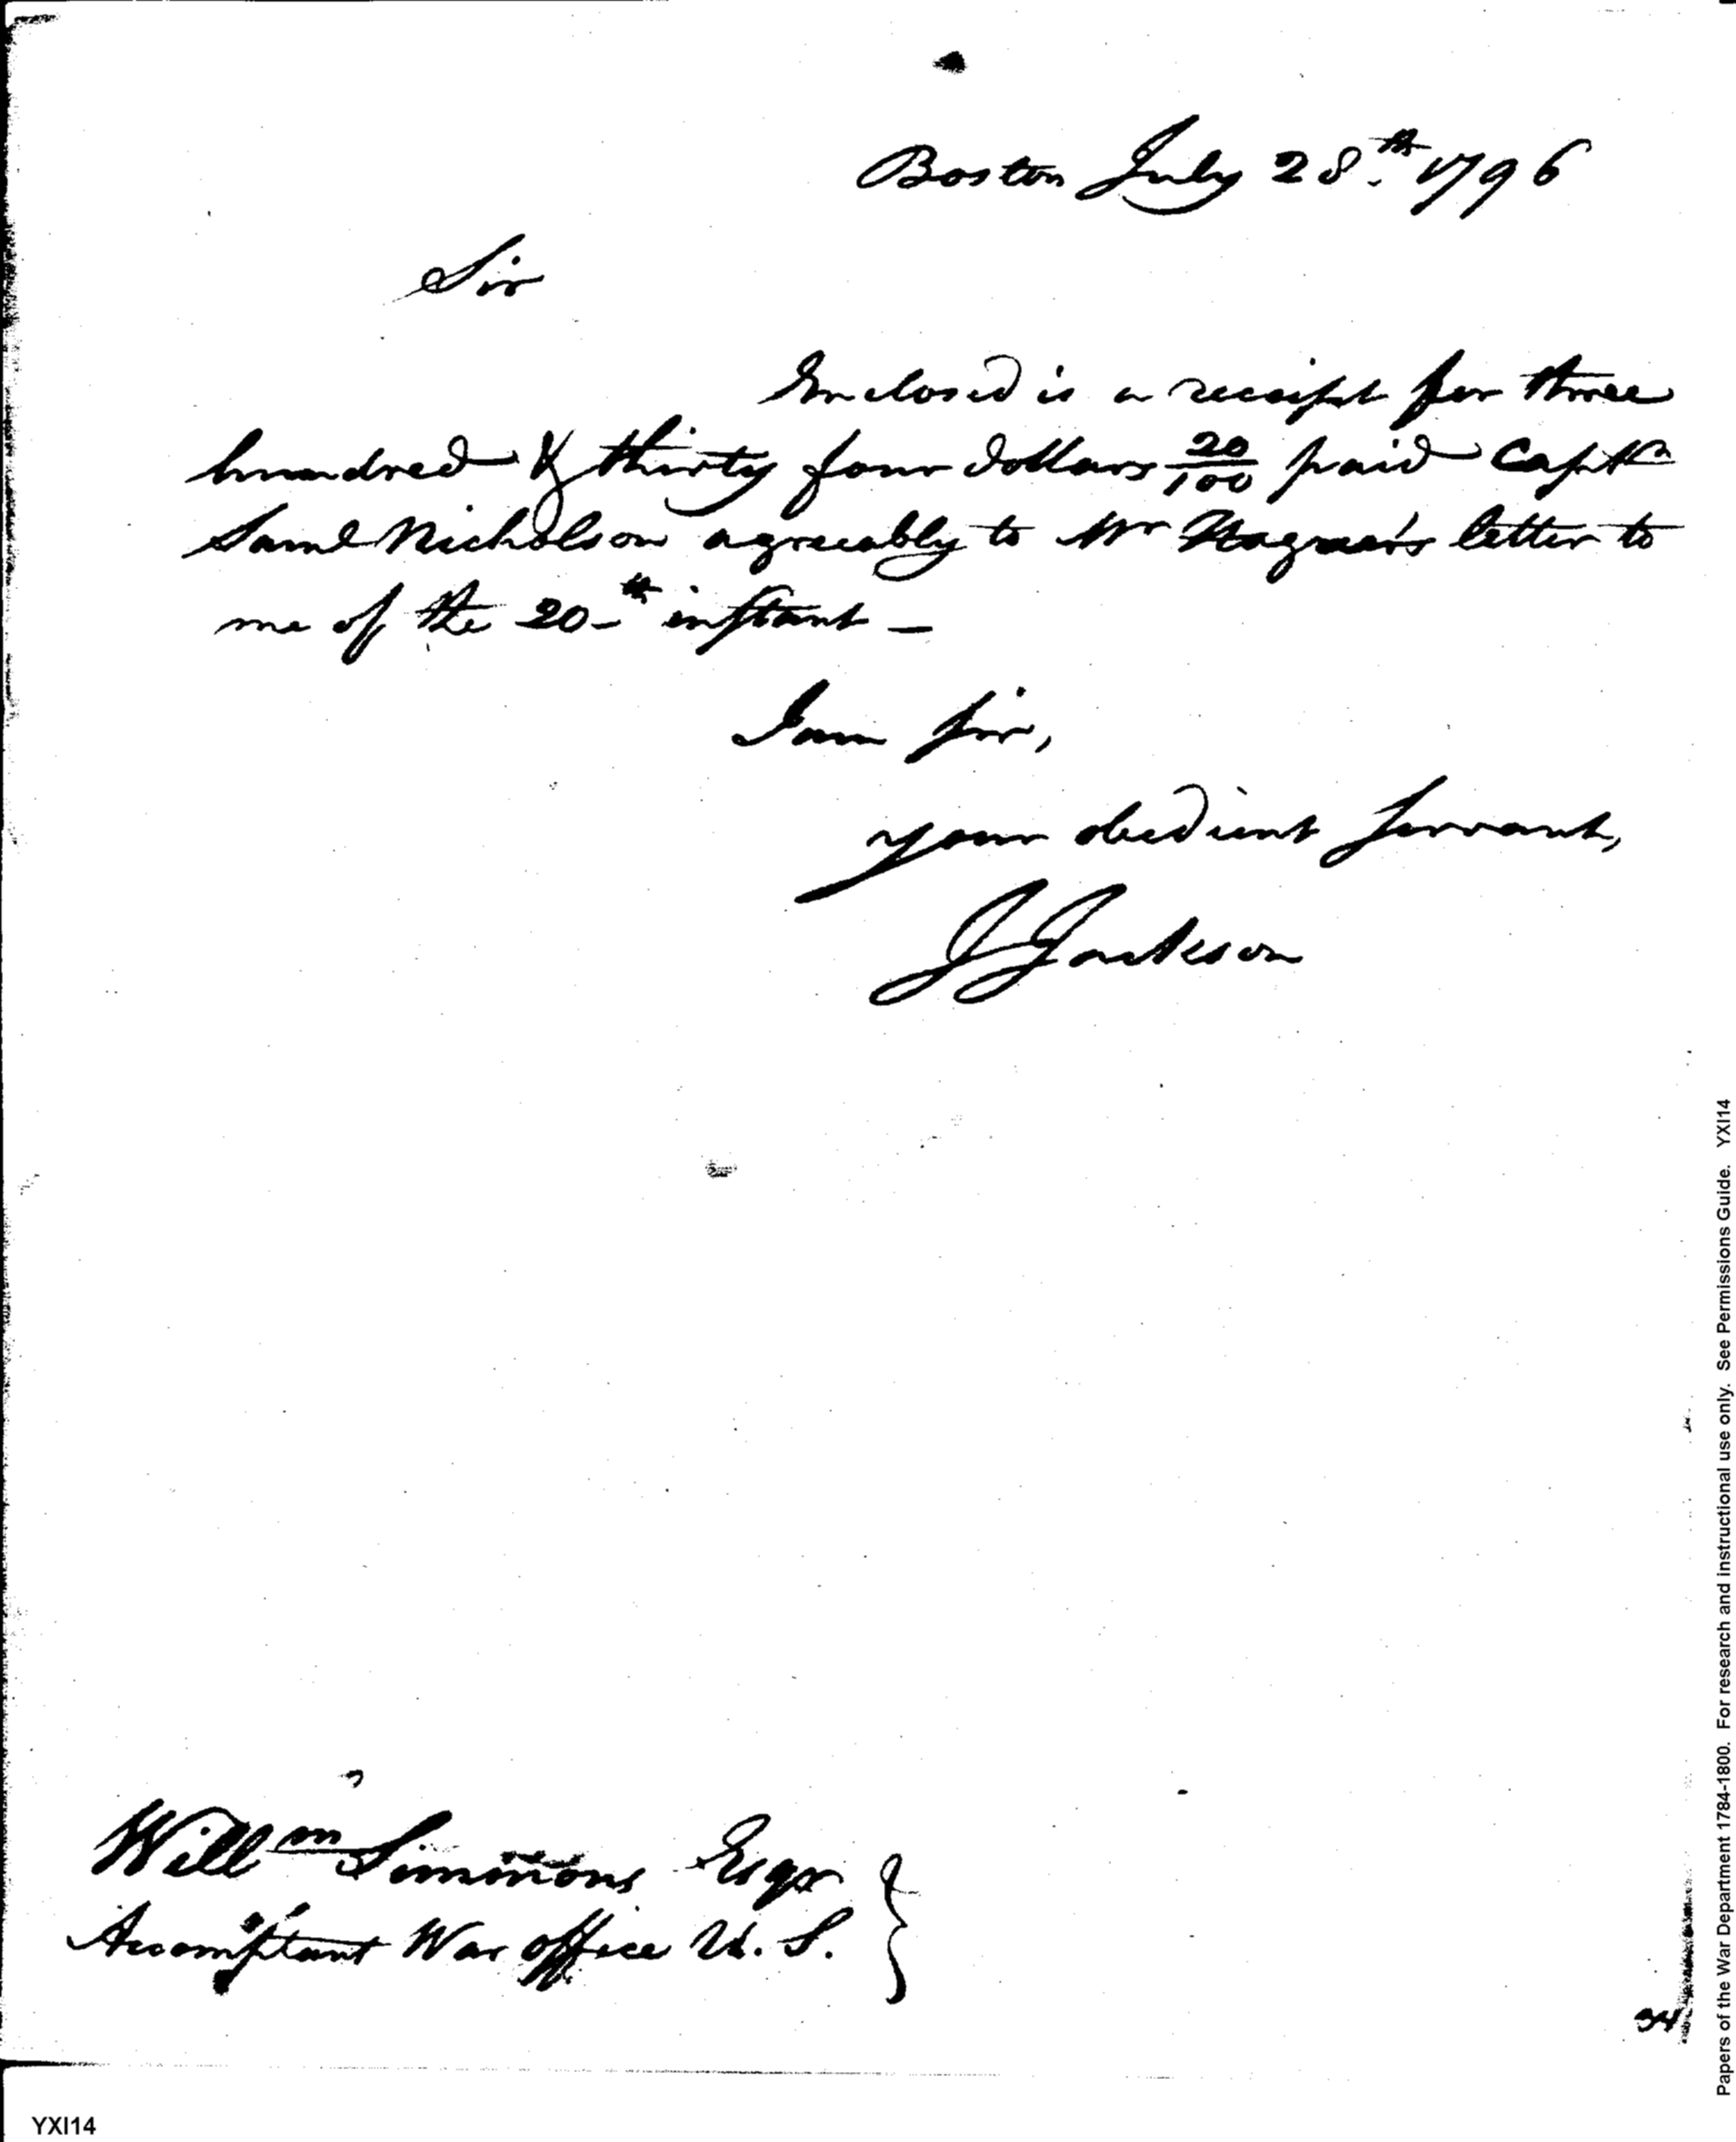 Boston July 28th. 1796
Sir
Enclosed is a receipt for three
hundred & thirty four dollars 20/100 paid Captn
Saml Nicholson agreeably to Mr letter to
me of the 20th instant —
I am Sir,
your obedient Servant,
J Jackson
Willm Simmons Esqr
Accomptant War office U. S.
34
Papers of the War Department 1784-1800. For research and instructional use only. See Permissions Guide. YXI14
YXI14